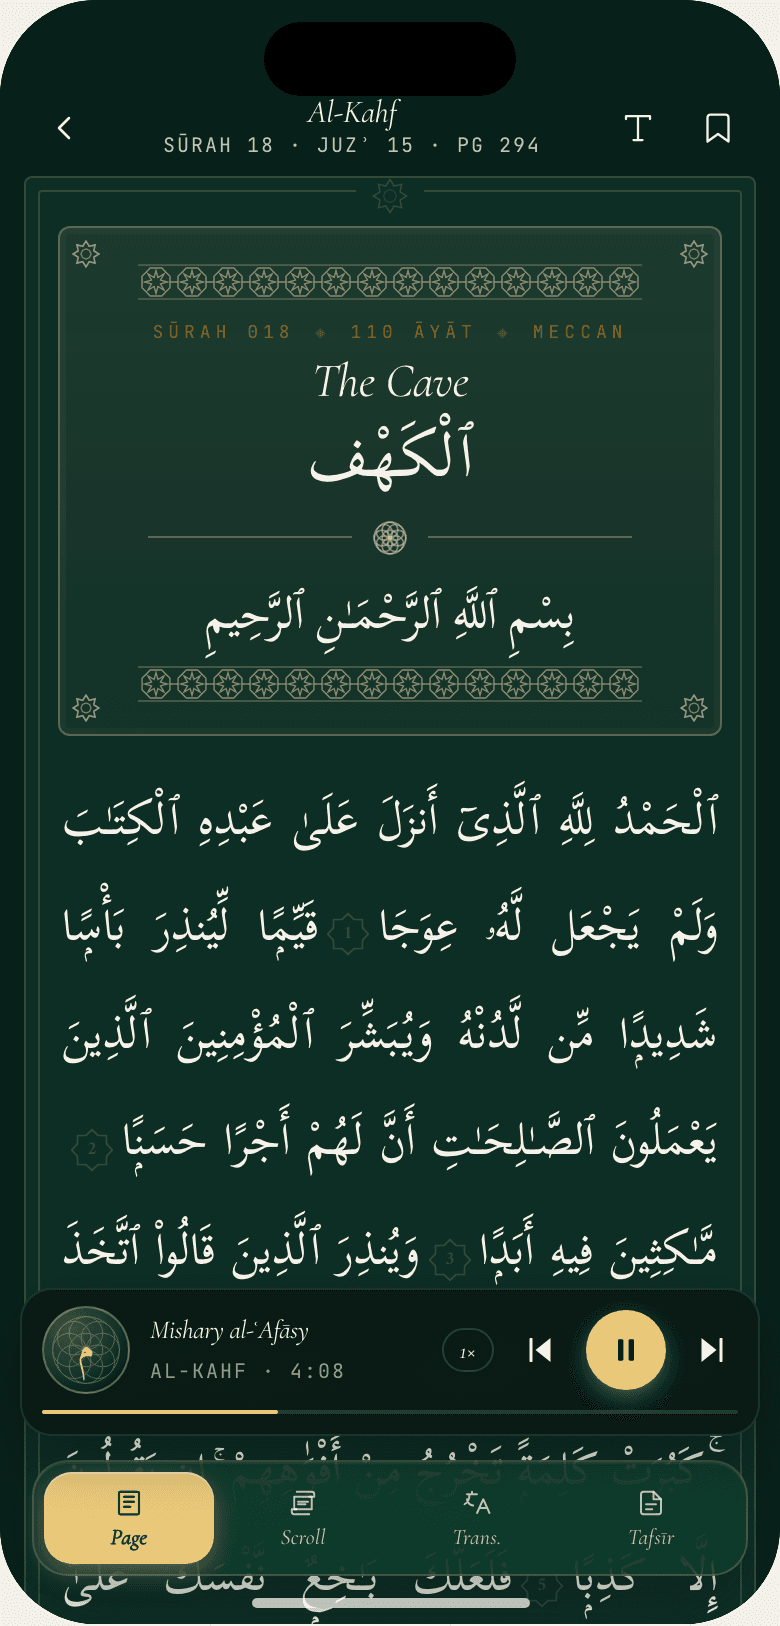 Al-Kahf
SŪRAH 18 · JUZʾ 15 · PG 294
SŪRAH 018 ◈ 110 ĀYĀT ◈ MECCAN
The Cave
ٱلْكَهْف
بِسْمِ ٱللَّهِ ٱلرَّحْمَـٰنِ ٱلرَّحِيمِ
ٱلْحَمْدُ لِلَّهِ ٱلَّذِىٓ أَنزَلَ عَلَىٰ عَبْدِهِ ٱلْكِتَـٰبَ
وَلَمْ يَجْعَل لَّهُۥ عِوَجَا 1 قَيِّمًۭا لِّيُنذِرَ بَأْسًۭا
شَدِيدًۭا مِّن لَّدُنْهُ وَيُبَشِّرَ ٱلْمُؤْمِنِينَ ٱلَّذِينَ
يَعْمَلُونَ ٱلصَّـٰلِحَـٰتِ أَنَّ لَهُمْ أَجْرًا حَسَنًۭا 2
مَّـٰكِثِينَ فِيهِ أَبَدًۭا 3 وَيُنذِرَ ٱلَّذِينَ قَالُوا۟ ٱتَّخَذَ
Mishary al-ʿAfāsy
AL-KAHF · 4:08
1×
كَبُرَتْ كَلِمَةًۭ تَخْرُجُ مِنْ أَفْوَٰهِهِمْ ۚ إِن يَقُولُونَ
Page
Scroll
Trans.
Tafsīr
إِلَّا كَذِبًۭا 5 فَلَعَلَّكَ بَـٰخِعٌۭ نَّفْسَكَ عَلَىٰٓ